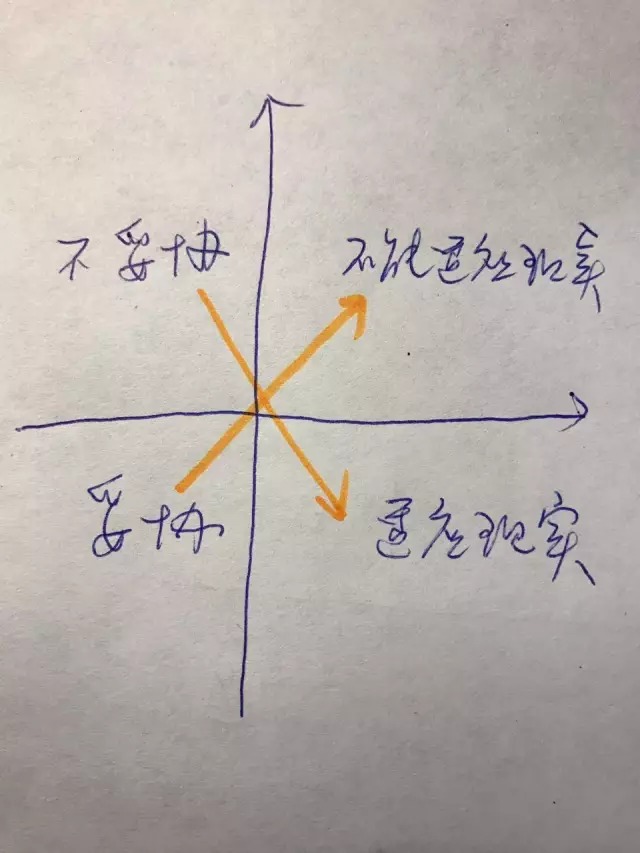 不妥协
不能适应现实
妥协
适应现实